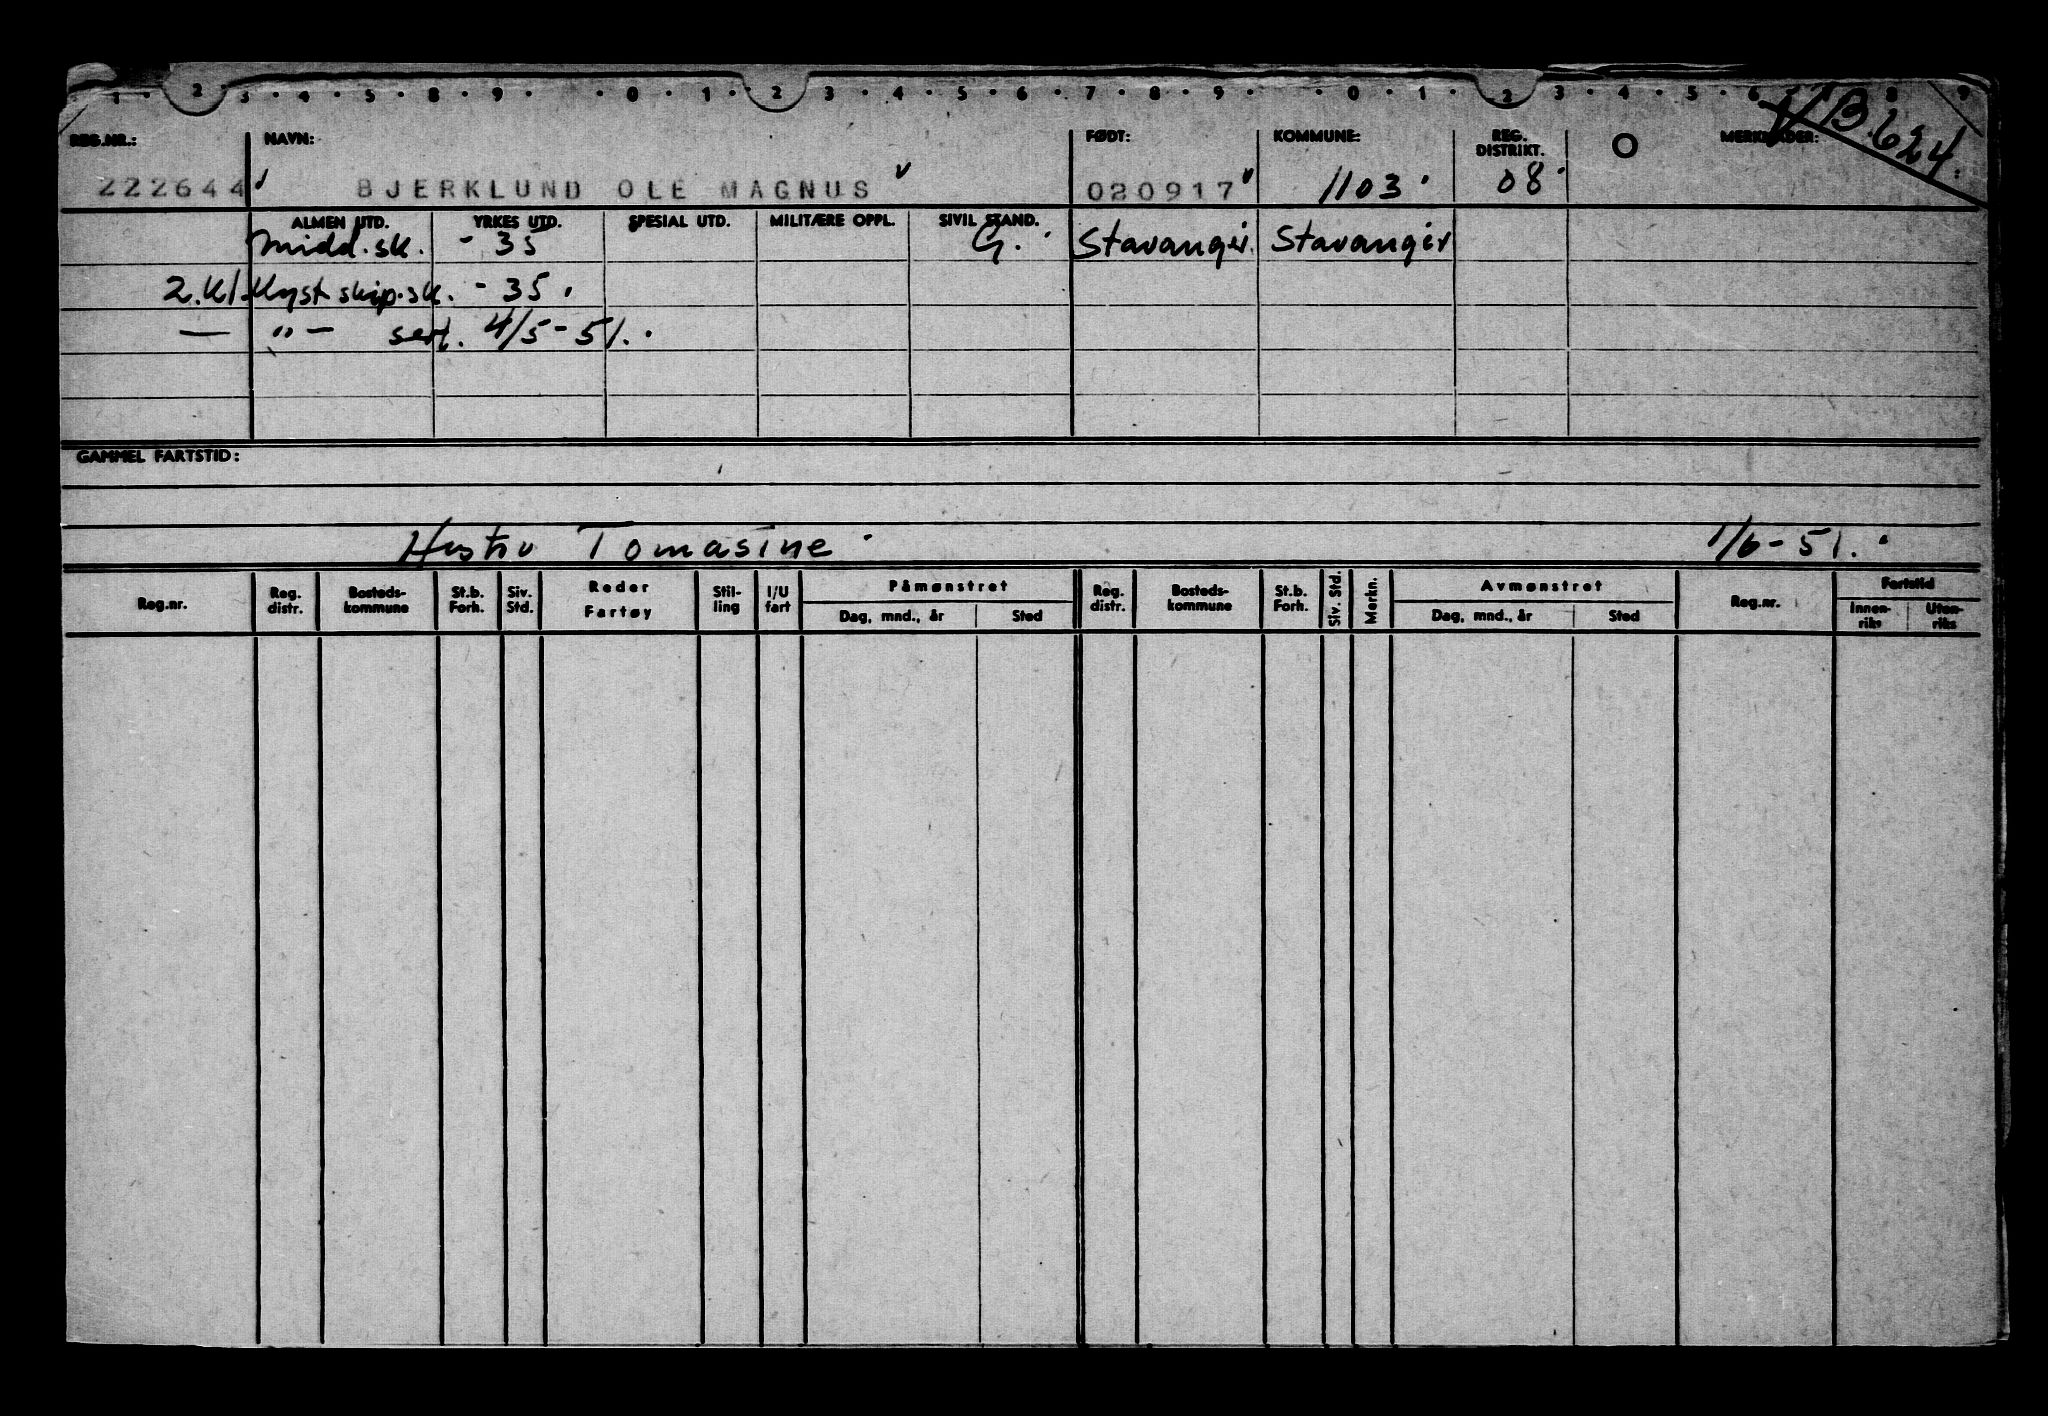 1 · 2 · 3 · 4 · 5 · 8 · 9 · · 0 · 1 · 2 · 3 · 4 · 5 · 6 · 7 · 8 · 9 · · 0 · 1 · 2 · 3 · 4 · 5 · 6 8 9
REG.NR.: NAVN: FØDT: KOMMUNE: REG. DISTRIKT. O MERKNADER: B.624.
222644 BJERKLUND OLE MAGNUS 020917 1103. 08.
ALMEN UTD. YRKES UTD. SPESIAL UTD. MILITÆRE OPPL. SIVIL STAND.
Midd.sk. - 35 G. Stavanger. Stavanger
2.kl. Kyst skip.sk. - 35.
— " — sert. 4/5-51.
GAMMEL FARTSTID:
Hustru Tomasine 1/6-51.
Reg.nr. Reg. distr. Bosteds-kommune St.b. Forh. Siv. Std. Reder Fartøy Stil-ling I/U fart Påmønstret Reg. distr. Bosteds-kommune St.b. Forh. Siv. Std. Merkn. Avmønstret Reg.nr. Fartstid
Dag, mnd., år Sted Dag, mnd., år Sted Innen-riks Uten-riks